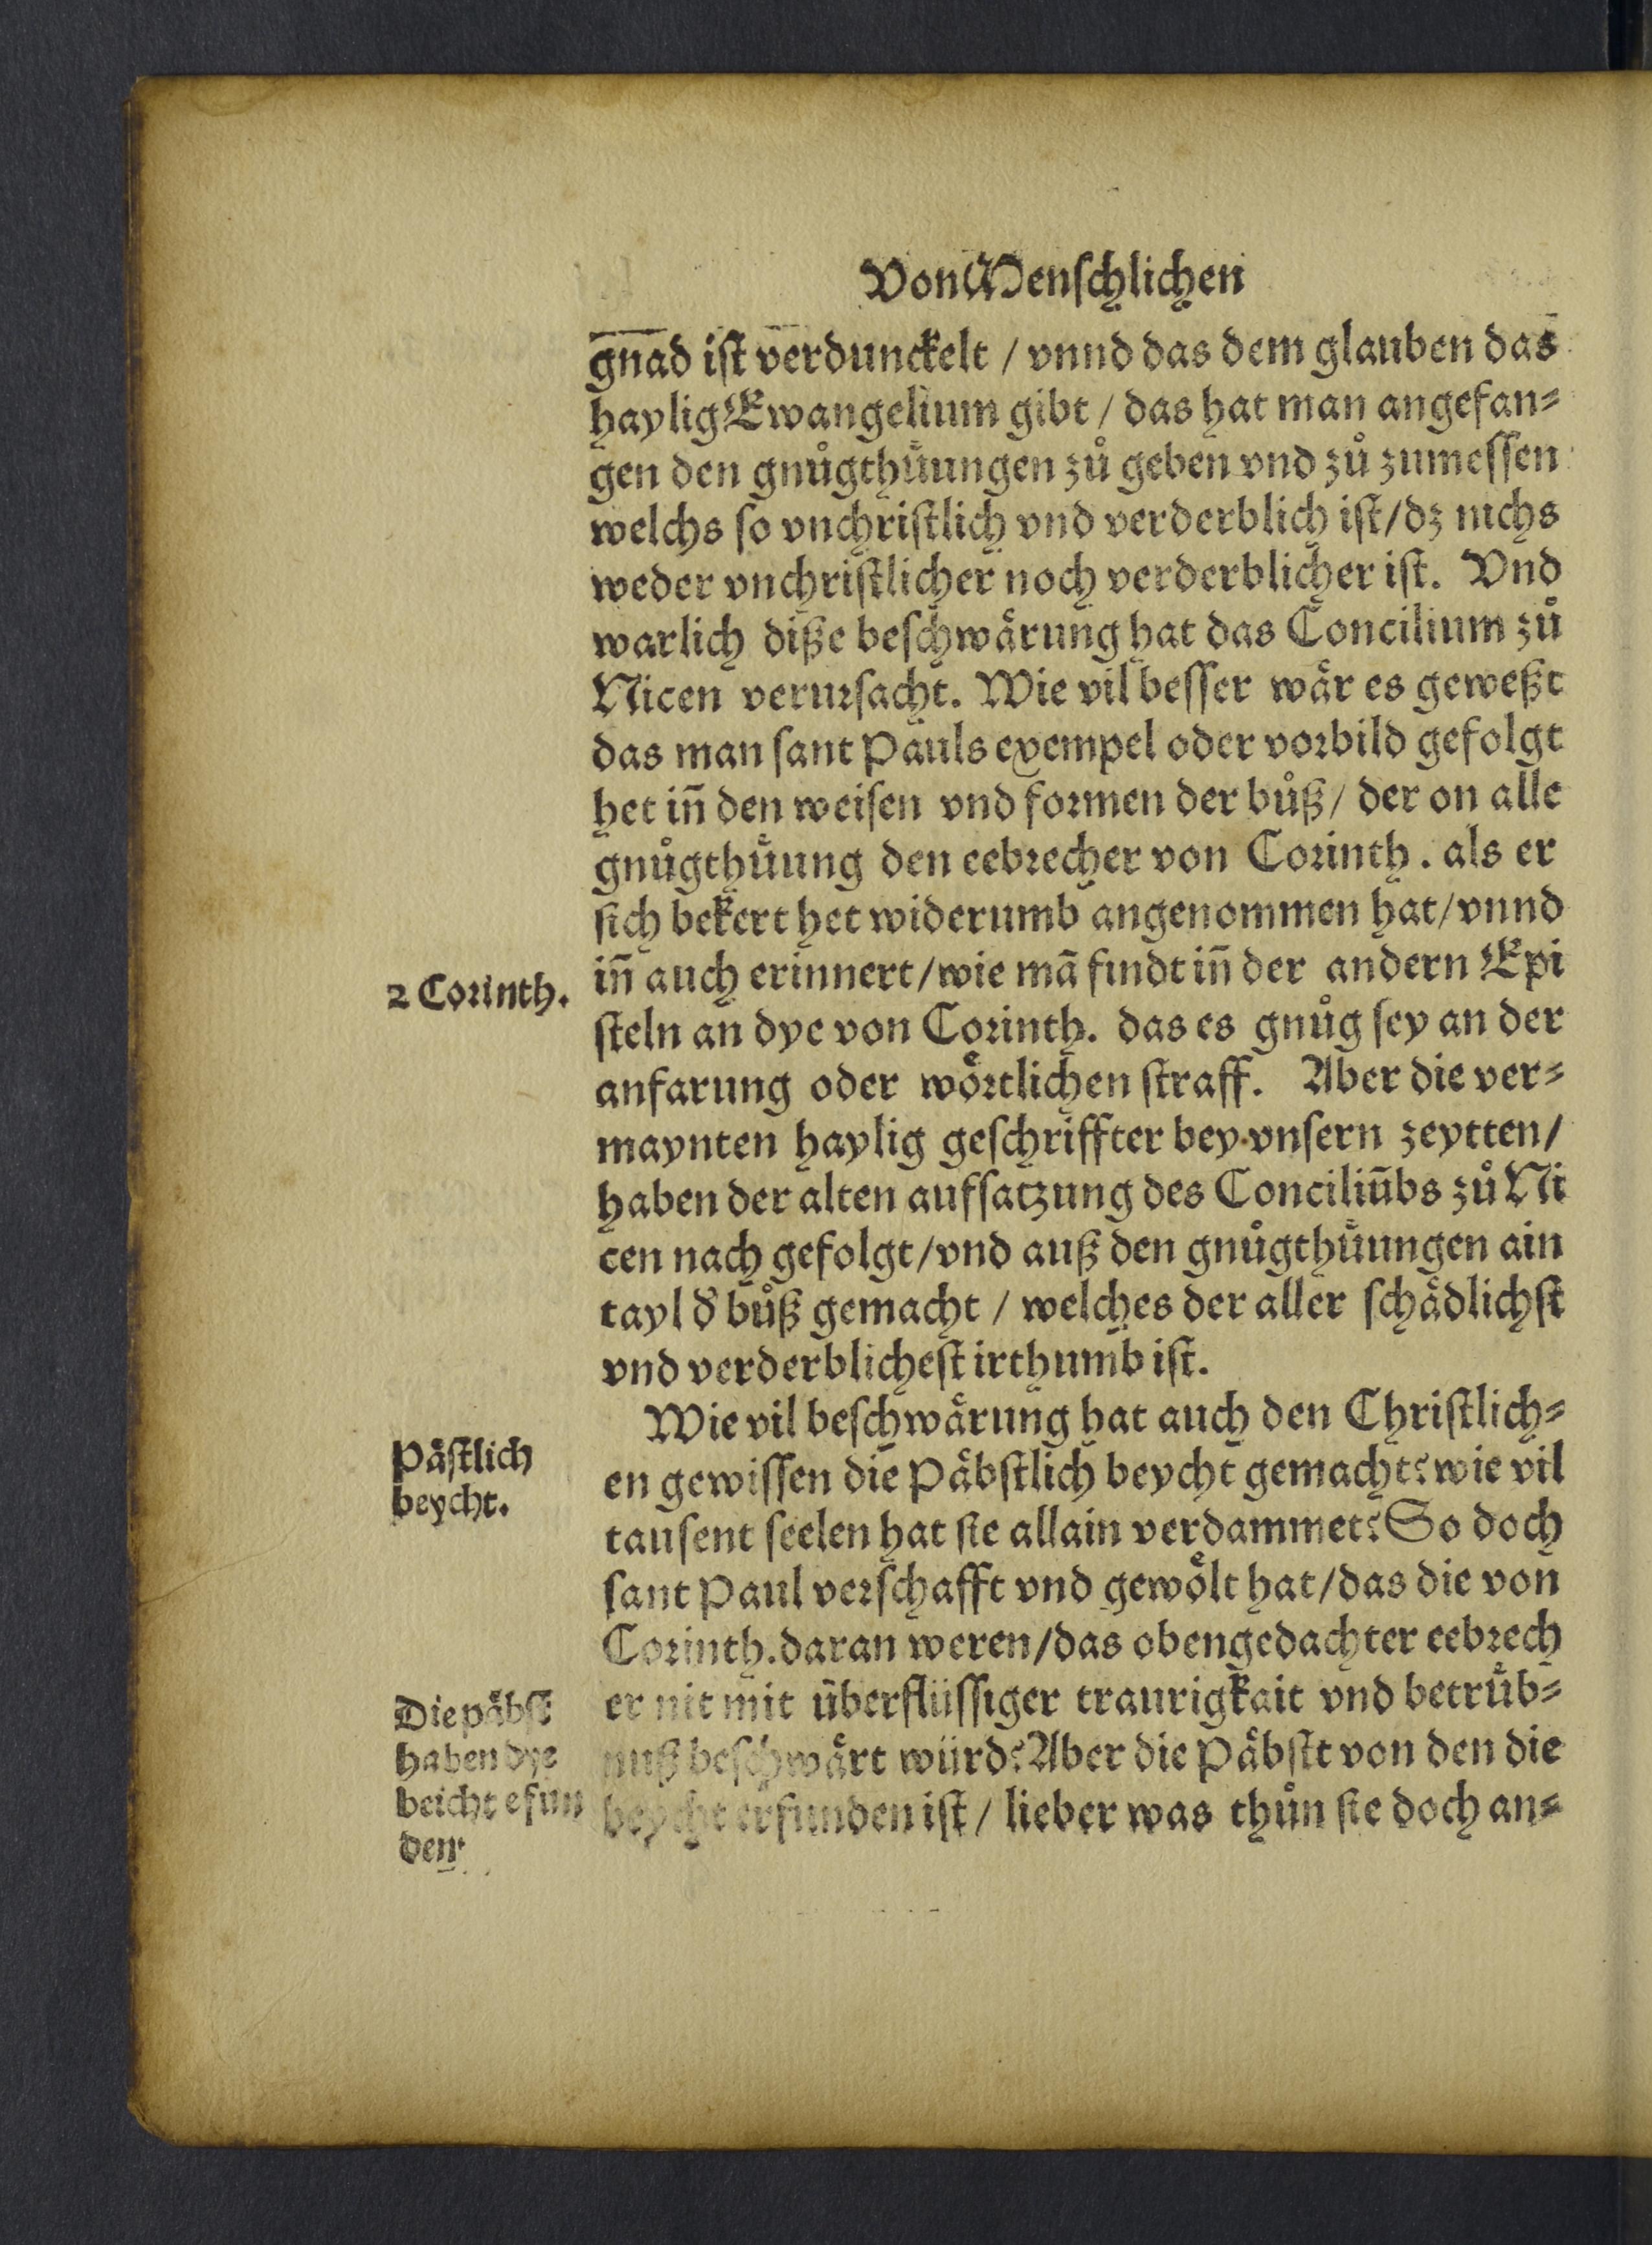 Von Menſchlichen
gnad iſt verdunckelt / vnnd das dem glauben das
haylig Ewangelium gibt / das hat man angefan⸗
gen den gnuͦgthuͤungen zuͦ geben vnd zuͦ zumeſſen
welchs ſo vnchriſtlich vnd verderblich iſt/dz nichs
weder vnchriſtlicher noch verderblicher iſt. Vnd
warlich diße beſchwaͤrung hat das Concilium zuͦ
Nicen verurſacht. Wie vil beſſer waͤr es geweßt
das man ſant Pauls exempel oder vorbild gefolgt
het in̄ den weiſen vnd formen der buͦß/ der on alle
gnuͦgthuͤung den eebrecher von Corinth. als er
ſich bekert het widerumb angenommen hat/vnnd
2 Corinth.
in̄ auch erinnert/wie mā findt in̄ der andern Epi
ſteln an dye von Corinth. das es gnuͦg ſey an der
anfarung oder woͤrtlichen ſtraff. Aber die ver⸗
maynten haylig geſchriffter bey vnſern zeytten/
haben der alten aufſatzung des Conciliūbs zuͦ Ni
cen nach gefolgt/vnd auß den gnuͦgthuͤungen ain
tayl d̕ buͦß gemacht / welches der aller ſchaͤdlichſt
vnd verderblicheſt irthumb iſt.
Wie vil beſchwaͤrung hat auch den Chriſtlich⸗
Paͤſtlich
beycht.
en gewiſſen die Paͤbſtlich beycht gemacht? wie vil
tauſent ſeelen hat ſie allain verdammet? So doch
ſant Paul verſchafft vnd gewoͤlt hat/das die von
Corinth. daran weren/das obengedachter eebrech
Die paͤbſt
haben dye
beicht efun
den.
er nit mit uͤberfluͤſſiger traurigkait vnd betruͤb⸗
nuß beſchwaͤrt wuͤrd? Aber die Paͤbſtt von den die
beycht erfunden iſt / lieber was thuͦn ſie doch an⸗